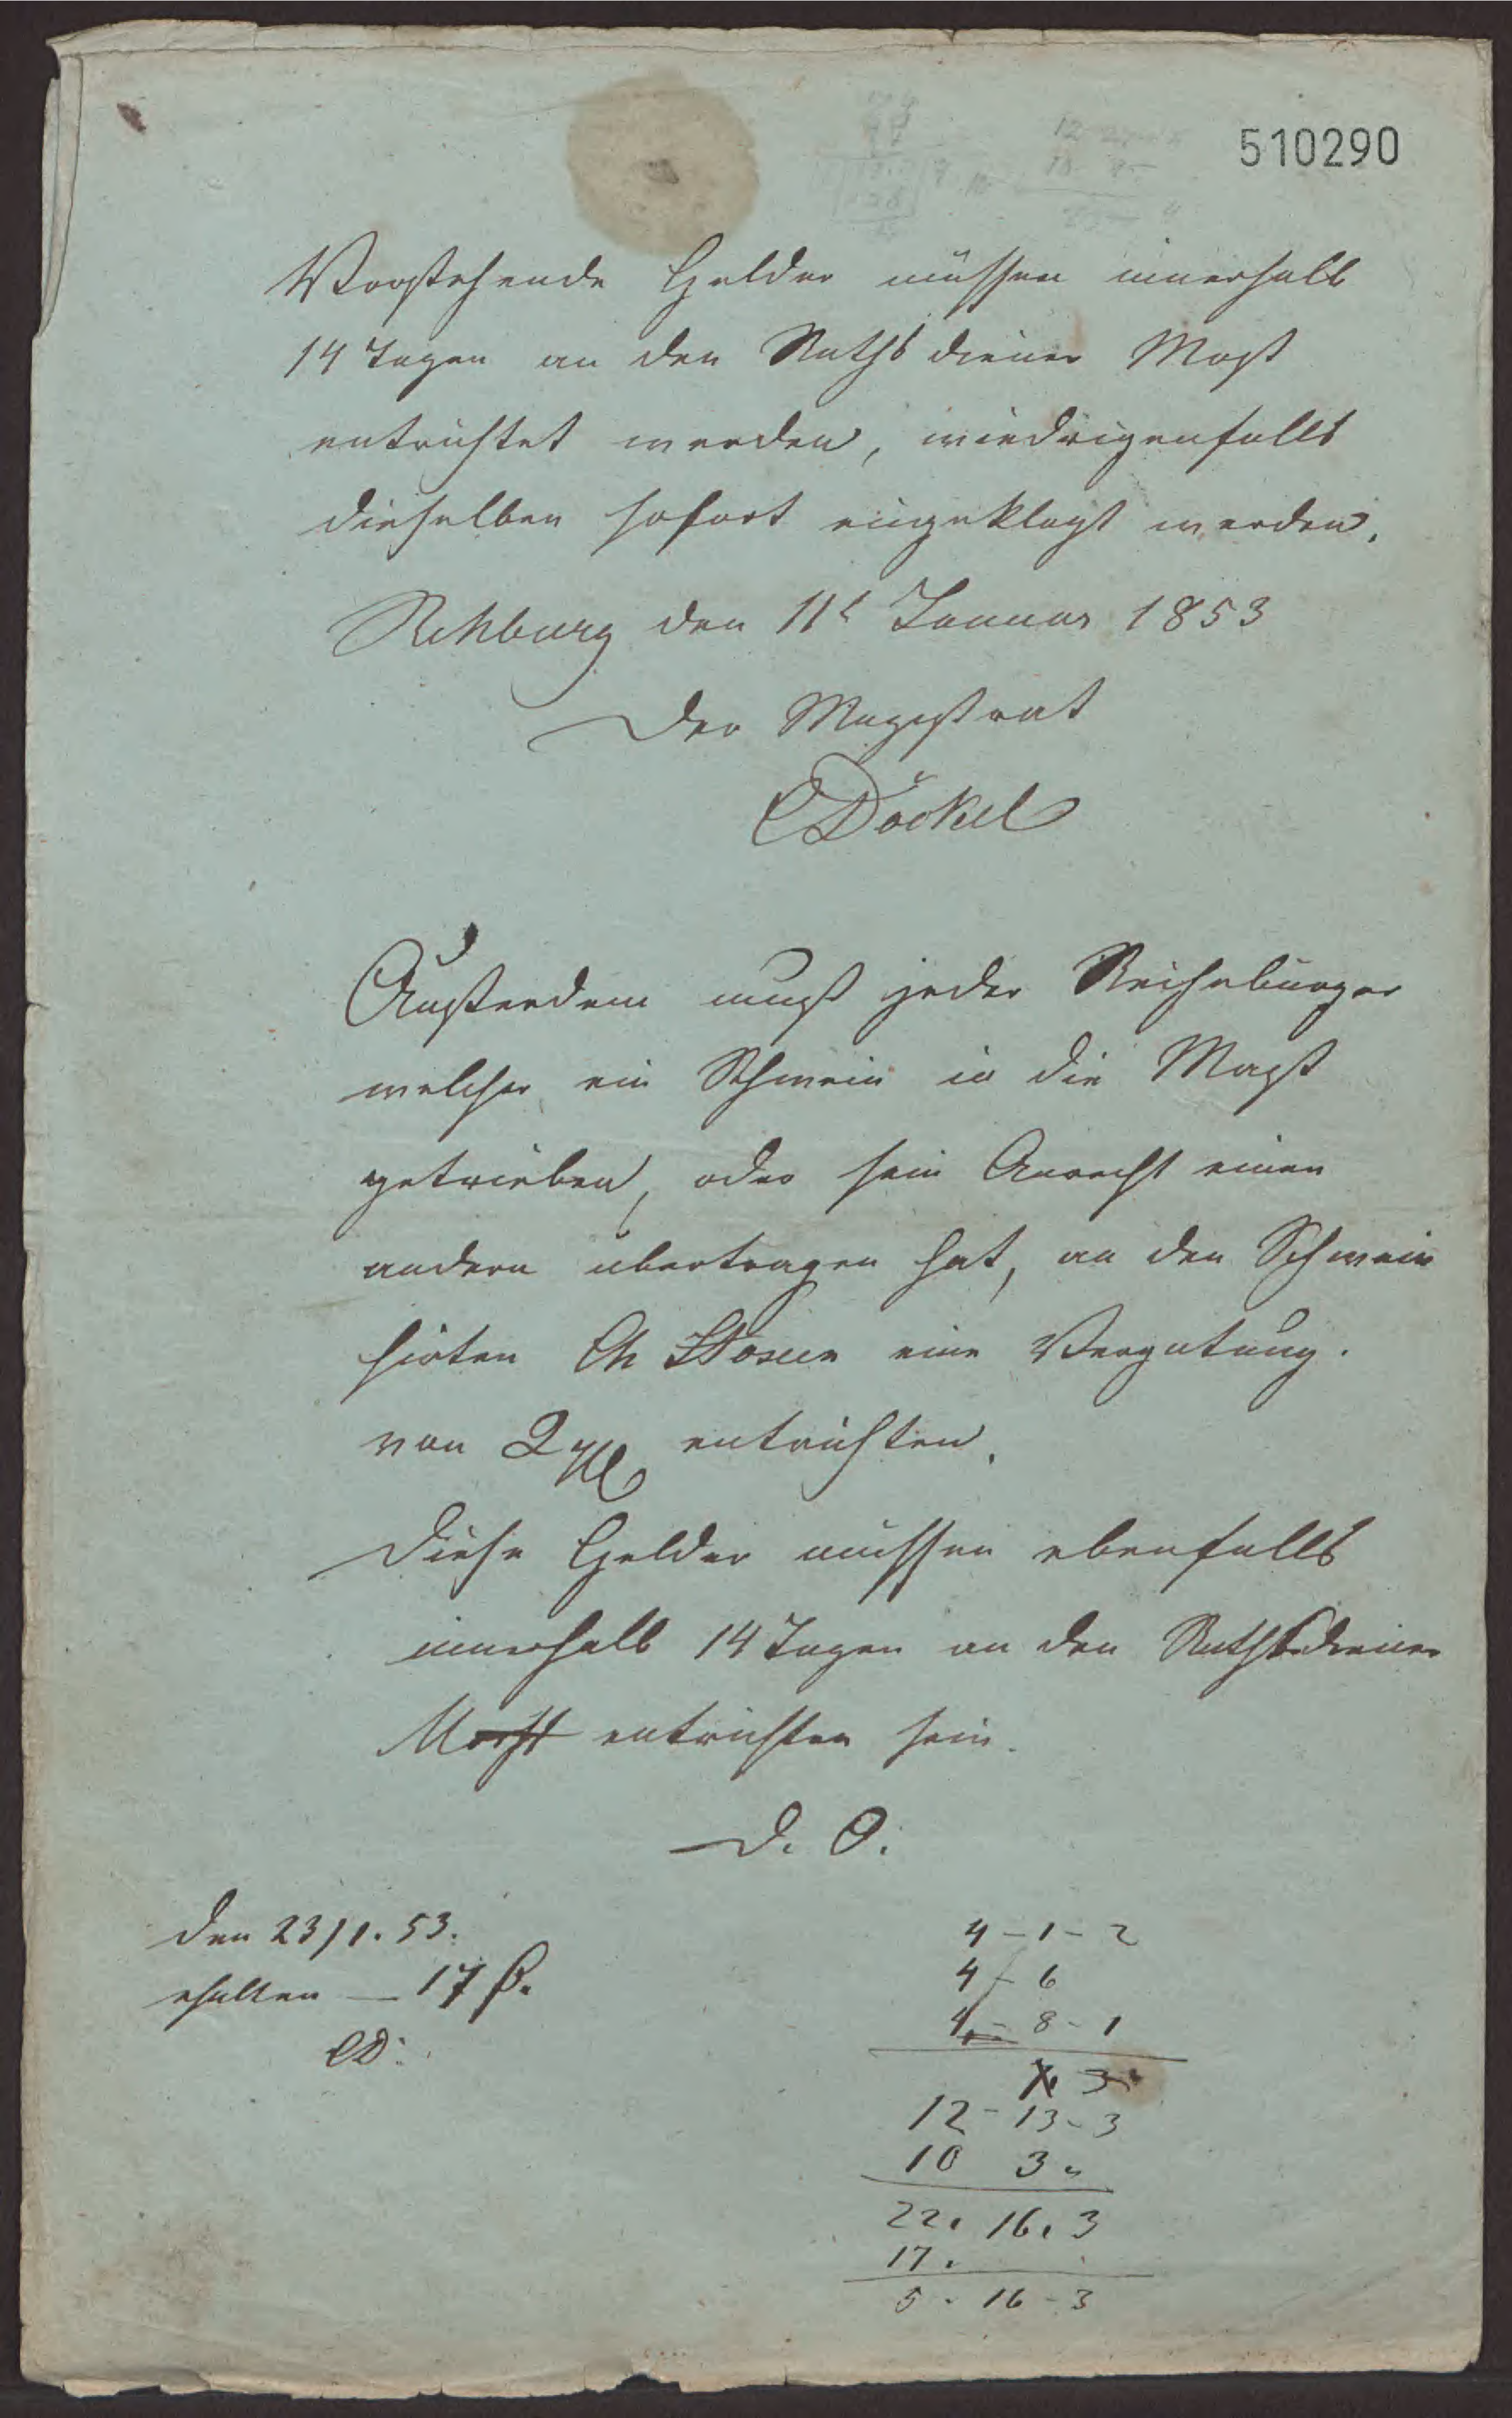 510290
Vorstehende Gelder müssen innerhalb
14 Tagen an den Rathsdiener Most
entrichtet werden, wiedrigenfalls
dieselben sofort eingeklagt werden.
Rehburg den 11t Januar 1853
Der Magistrat
CDöckel
Außerdem muß jeder Reiheburger
welcher ein Schwein in die Mast
getrieben, oder sein Anrecht einen
andern ubertragen hat, an den Schwein
hirten Ch eine Vergutung.
von 2 entrichten.
Diese Gelder müssen ebenfalls
innerhalb 14 Tagen an den Rathsdiener
entrichten sein.
D. O.
den 23/1. 53.
ehalten — 17
CD.
4 - 1 - 2
4 - 6
4 - 8 - 1
3
12 - 13 - 3
10 3 "
22. 16. 3
17.
5 - 16 - 3